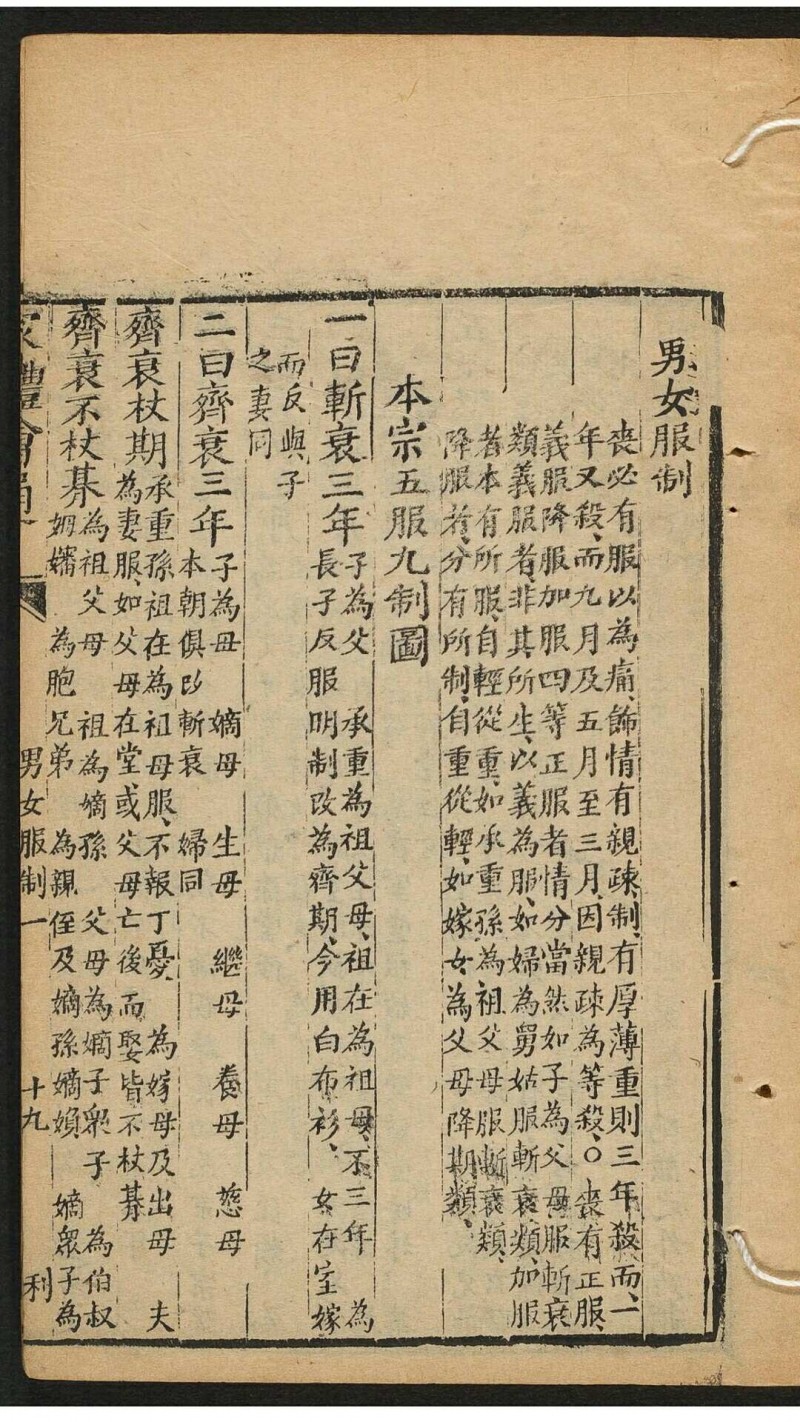 男女服制
喪必有服以為痛飾情有親疎制有厚薄重則三年殺而一
年又殺而九月及五月至三月因親疎為等殺○喪有正服
義服降服加服四等正服者情分當然如子為父母服斬衰
類義服者非其所生以義為服如婦為舅姑服斬衰類加服
者本有所服自輕從重如承重孫為祖父母服斬衰類
降服者分有所制自重從輕如嫁女為父母降期類
本宗五服九制圖
一曰斬衰三年
子為父 承重為祖父母祖在為祖母不三年 為
長子反服 明制改為齊期今用白布衫 女在室嫁
而反與子
之妻同
二曰齊衰三年
子為母 嫡母 生母 繼母 養母 慈母
本朝俱改斬衰 婦同
齊衰杖期
承重孫祖在為祖母服不報丁憂 為嫁母及出母 夫
為妻服如父母在堂或父母亡後而娶皆不杖朞
齊衰不杖朞
為祖父母 祖為嫡孫 父母為嫡子衆子 為伯叔
姆嬸 為胞兄弟 為親侄及嫡孫嫡 嫡衆子為
家禮會通 男女服制一 十九 利